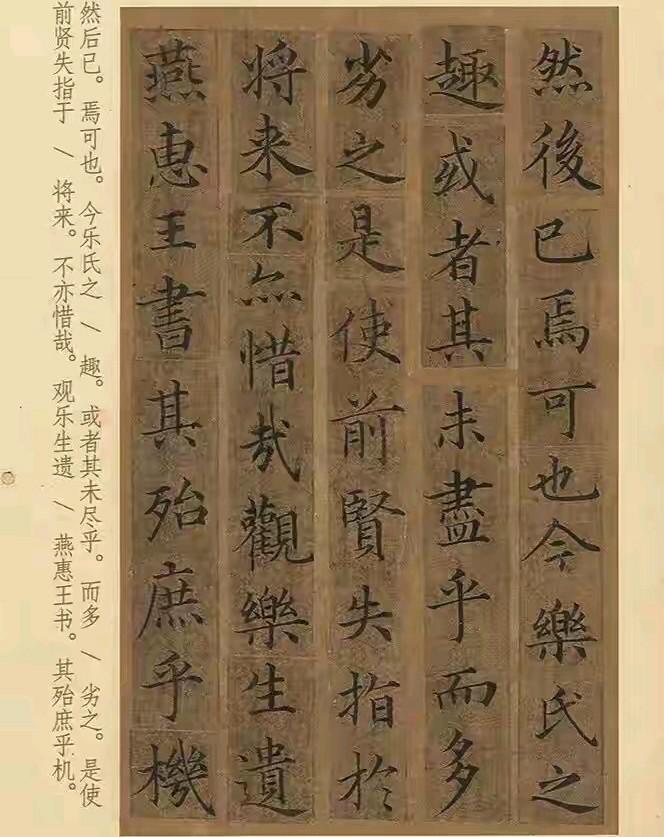 然後已焉可也今樂氏之
趣或者其未盡乎而多
劣之是使前賢失指於
将来不亦惜哉觀樂生遺
燕惠王書其殆庶乎機
然后已。焉可也。今乐氏之 \ 趣。或者其未尽乎。而多 \ 劣之。是使
前贤失指于 \ 将来。不亦惜哉。观乐生遗 \ 燕惠王书。其殆庶乎机。